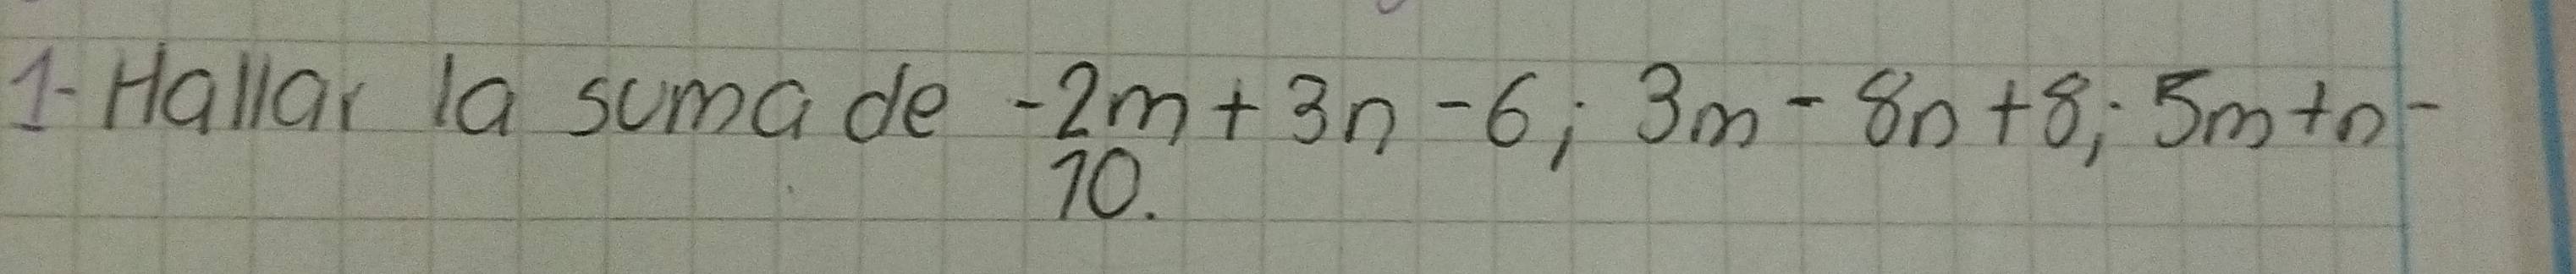 1- Hallar la suma de -2m + 3n - 6; 3m - 8n + 8; 5m + n -
10.